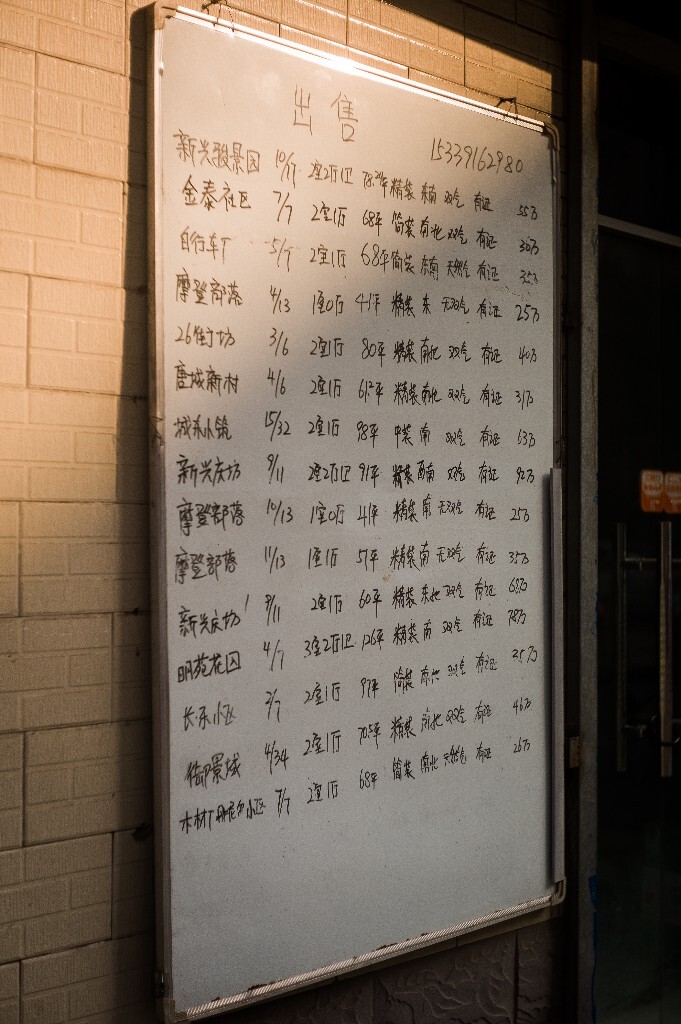 出售
15339162980
新兴骏景园 10/17 2室2厅1卫 78.24平 精装 东南 双气 有证 55万
金泰社区 7/7 2室1厅 68平 简装 南北 双气 有证 36万
自行车厂 5/7 2室1厅 68平 简装 东南 天然气 有证 35万
摩登部落 4/13 1室0厅 41平 精装 东 无双气 有证 25万
26街坊 3/6 2室1厅 80平 精装 南北 双气 有证 40万
唐城新村 4/6 2室1厅 61.2平 精装 南北 双气 有证 31万
城东小筑 15/32 2室1厅 98平 中装 南 双气 有证 63万
新兴庆坊 9/11 2室2厅1卫 91平 精装 西南 双气 有证 92万
摩登部落 10/13 1室0厅 41平 精装 南 无双气 有证 25万
摩登部落 11/13 1室1厅 57平 精装 南 无双气 有证 35万
新兴庆坊 8/11 2室1厅 60平 精装 东北 双气 有证 68万
明苑花园 4/7 3室2厅1卫 126平 精装 南 双气 有证 78万
长东小区 2/7 2室1厅 97平 简装 双气 有证
御景城 4/34 2室1厅 70.5平 精装 南北 双气 有证 46万
木材厂丹尼尔小区 7/7 2室1厅 68平 简装 南北 天然气 有证 26万